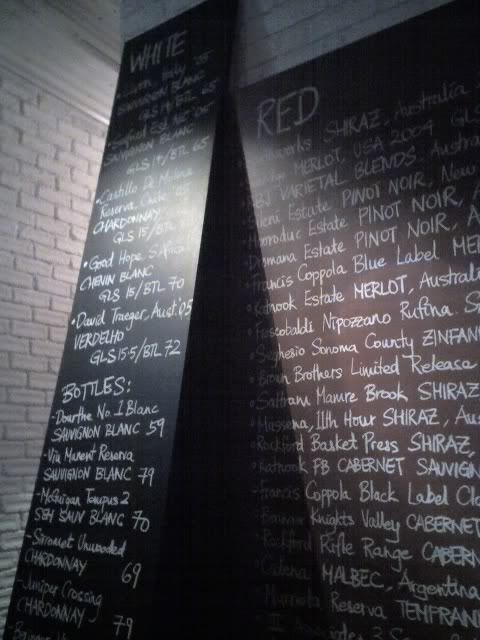 WHITE
SAUVIGNON BLANC
GLS 14/BTL 65
SAUVIGNON BLANC
GLS 14/BTL 65
•Castillo De Molina
Reserva, Chile '05
CHARDONNAY
GLS 15/BTL
•Good Hope, S.Africa
CHENIN BLANC
GLS 15/BTL 70
•David Traeger, Aust '05
VERDELHO
GLS 15.5/BTL 72
BOTTLES:
-Dourthe No.1 Blanc
SAUVIGNON BLANC 59
-Viu Manent Reserva
SAUVIGNON BLANC 79
-McGuigan Tempus 2
SEM SAUV BLANC 70
-Sirromet Unwooded
CHARDONNAY 69
-Juniper Crossing
CHARDONNAY 79
RED
SHIRAZ, Australia
MERLOT, USA 2004 GLS
VARIETAL BLENDS, Austra
Estate PINOT NOIR, New
Estate PINOT NOIR,
Estate PINOT NOIR, A
Francis Coppola Blue Label MER
Katnook Estate MERLOT, Australi
Frescobaldi Nipozzano Rufina
Seghesio Sonoma County ZINFAN
Brown Brothers Limited Release
Saltram Mamre Brook SHIRAZ
Massena, 11th Hour SHIRAZ, Aus
Rockford Basket Press SHIRAZ,
Katnook FB CABERNET SAUVIGN
Francis Coppola Black Label Cla
Knights Valley CABERNET
Rockford Rifle Range CABERN
Cadena MALBEC, Argentina
Reserva TEMPRAN